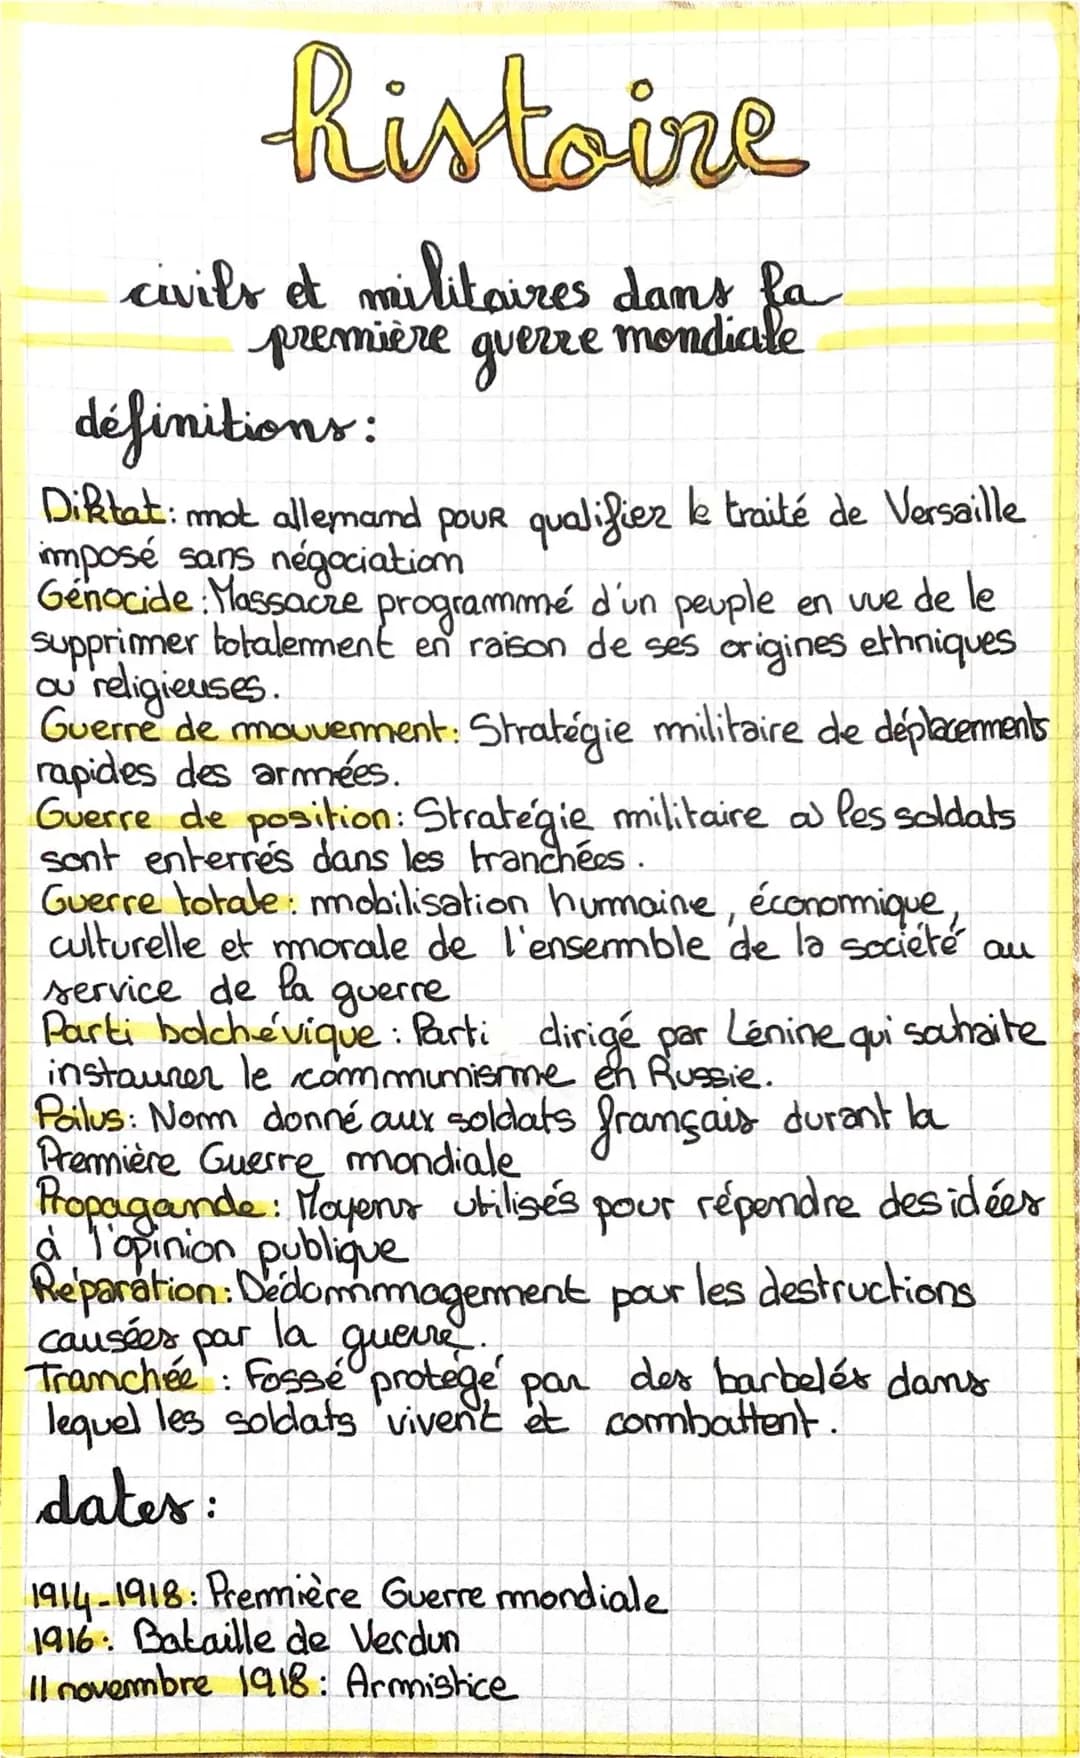 histoire
civils et militaires dans la
première guerre mondiale
définitions :
Diktat : mot allemand pour qualifier le traité de Versaille
imposé sans négociation
Génocide : Massacre programmé d'un peuple en vue de le
supprimer totalement en raison de ses origines ethniques
ou religieuses.
Guerre de mouvement : Stratégie militaire de déplacements
rapides des armées.
Guerre de position : Stratégie militaire où les soldats
sont enterrés dans les tranchées.
Guerre totale : mobilisation humaine, économique,
culturelle et morale de l'ensemble de la société au
service de la guerre
Parti bolchévique : Parti dirigé par Lénine qui souhaite
instaurer le communisme en Russie.
Poilus : Nom donné aux soldats français durant la
Première Guerre mondiale
Propagande : Moyens utilisés pour répendre des idées
à l'opinion publique
Réparation : Dédommagement pour les destructions
causées par la guerre.
Tranchée : Fossé protégé par des barbelés dans
lequel les soldats vivent et combattent.
dates :
1914-1918 : Première Guerre mondiale
1916 : Bataille de Verdun
11 novembre 1918 : Armistice